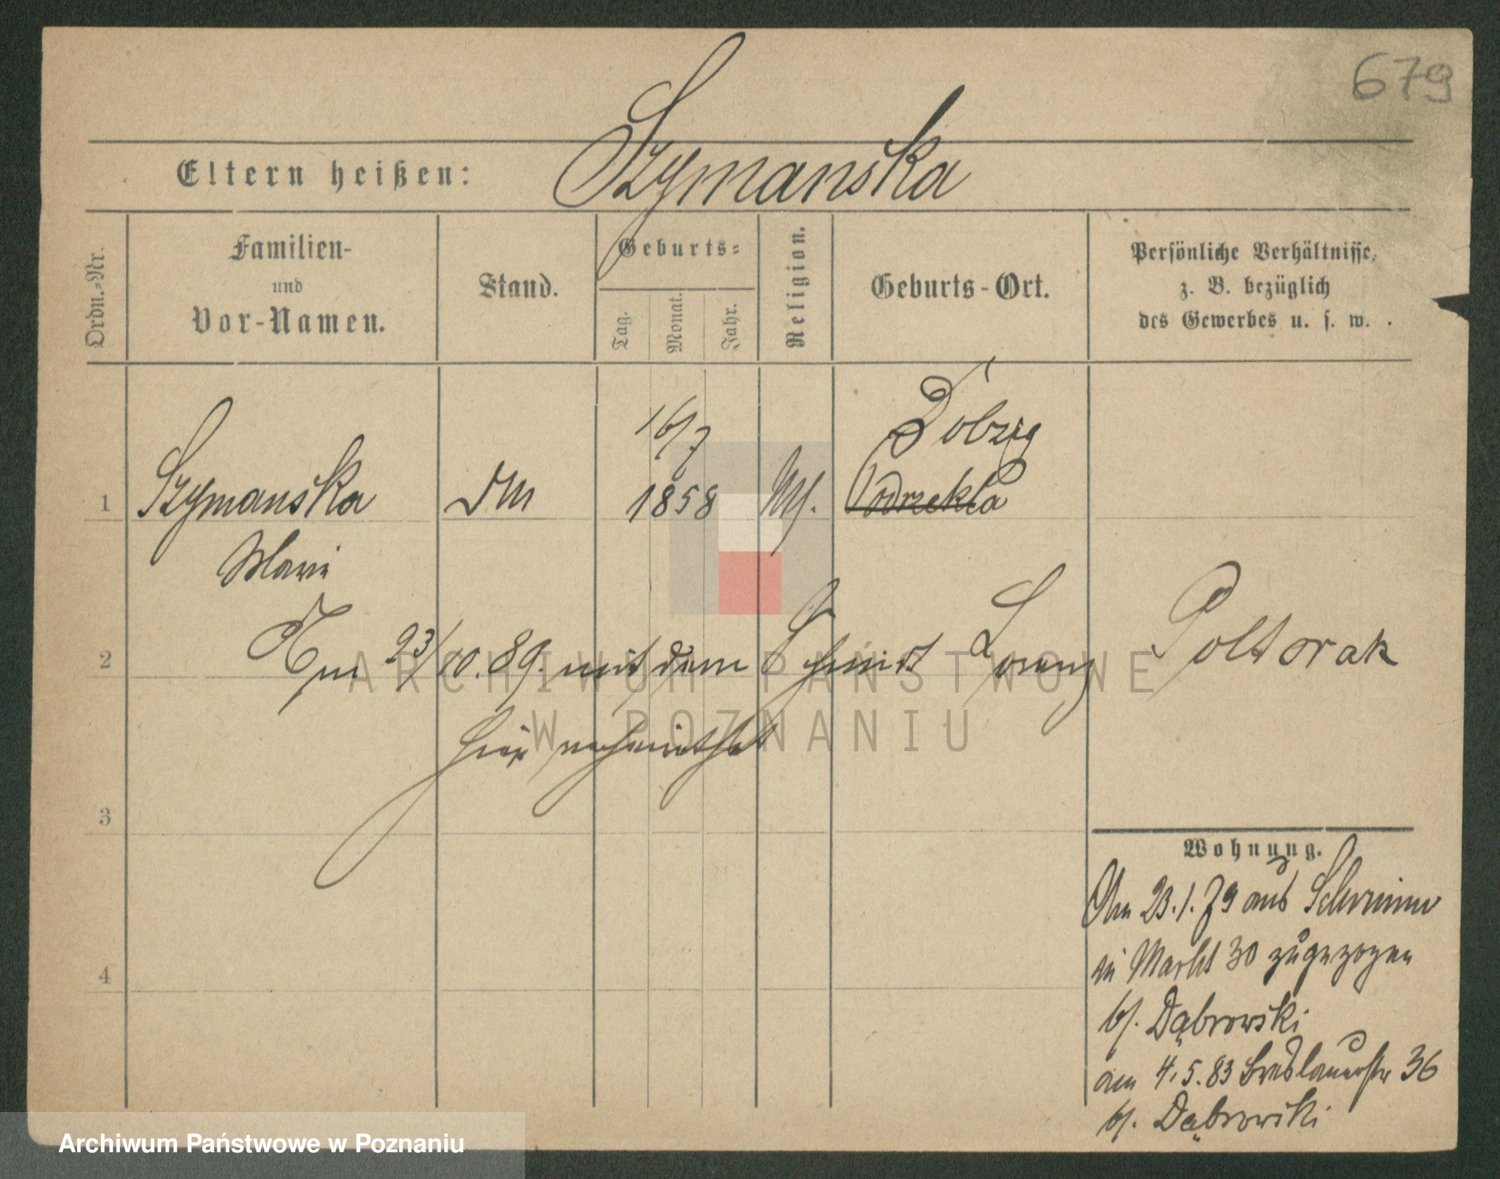 679
Eltern heißen: Szymanska
Ordn.-Nr.
Familien-
und
Vor-Namen.
Stand.
Geburts-
Tag.
Monat.
Jahr.
Religion.
Geburts-Ort.
Persönliche Verhältnisse,
z. B. bezüglich
des Gewerbes u. s. w.
16/7
Dobzig
1 Szymanska 1858 Podrzekta
Marie
2 Am 23/10.89. mit dem Schmidt Lorenz Poltorak
hier verheirathet
3
Wohnung.
Am 23.1.79 aus Schrimm
in Markt 30 zugezogen
4
bf. Dąbrowski
am 4.5.83 Breslauerstr 36
bf. Dąbrowski
ARCHIWUM PAŃSTWOWE
W POZNANIU
Archiwum Państwowe w Poznaniu